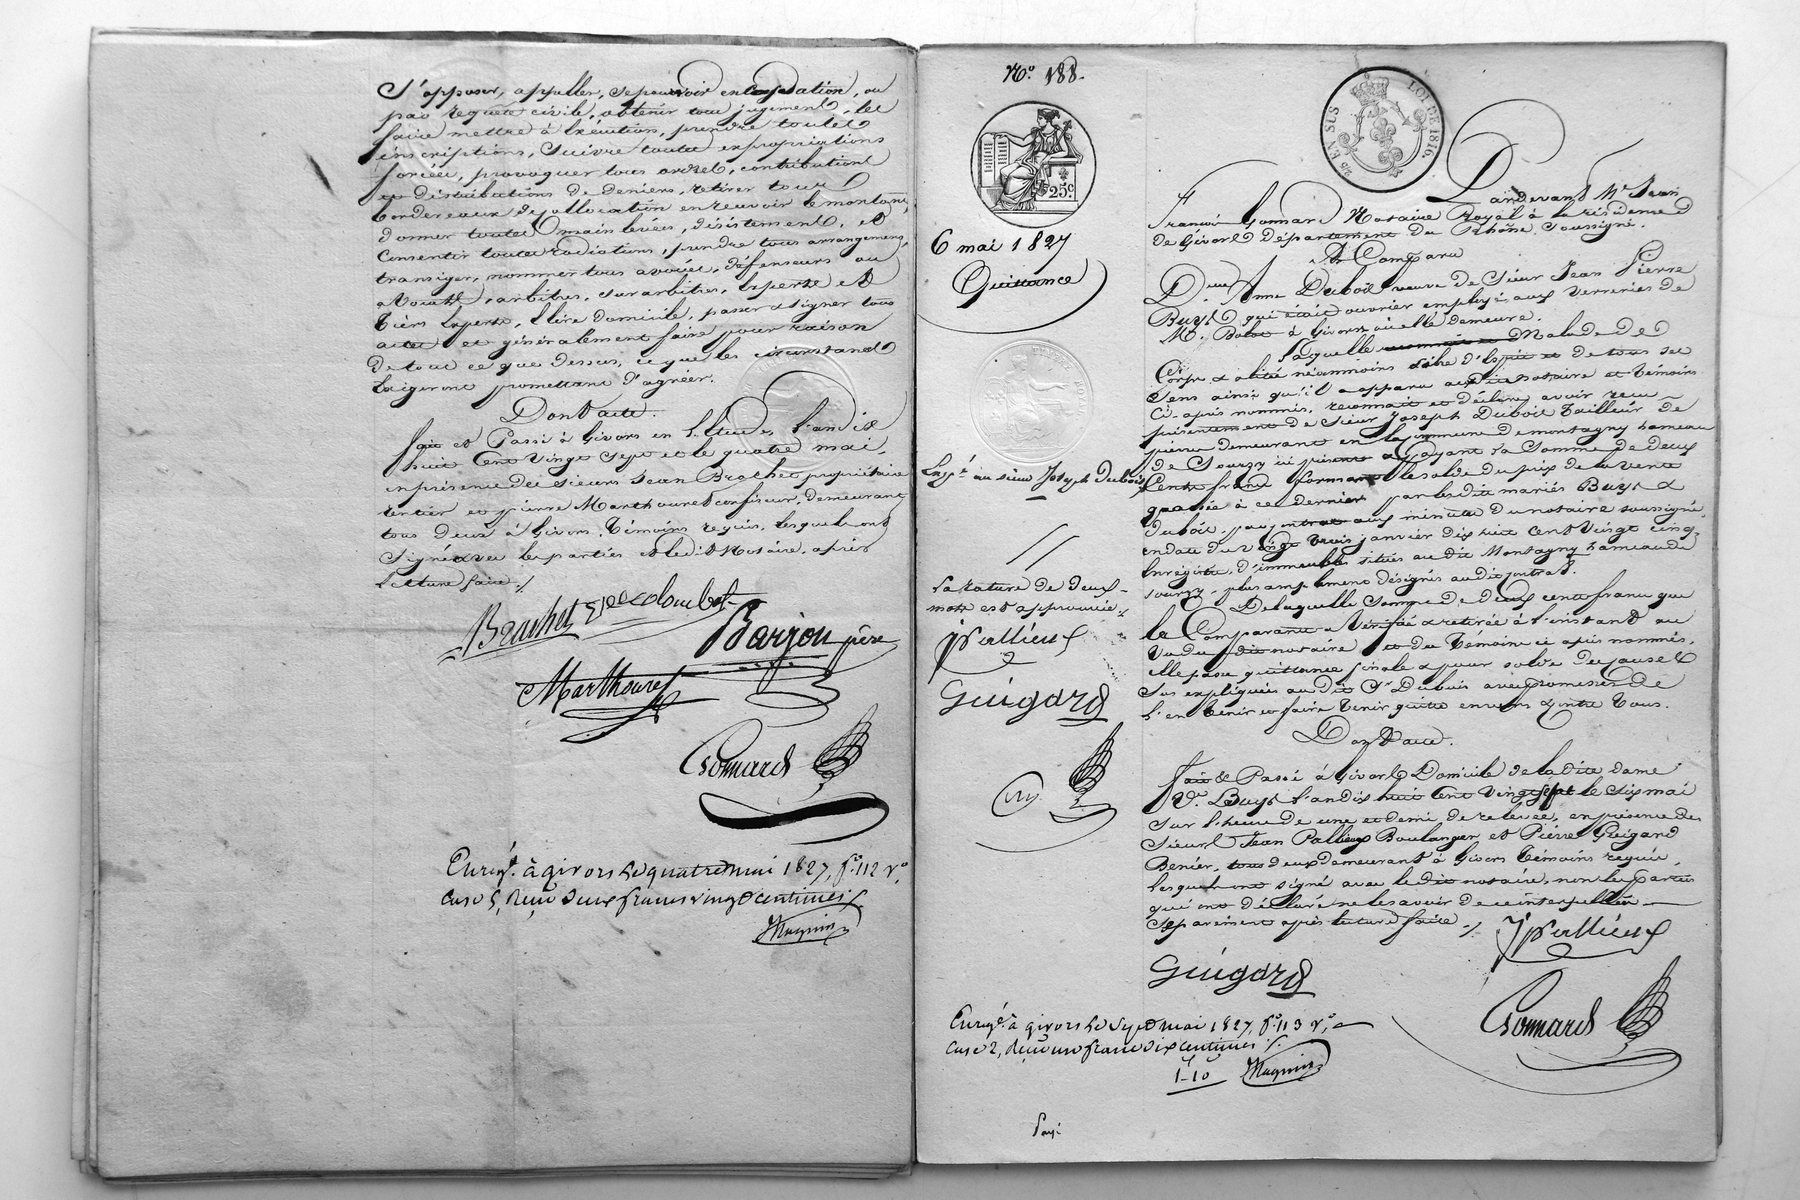 S'opposer, appeller, se pourvoir en Cassation, ou
par requête civile, obtenir tous jugements, les
faire mettre à Exécution, prendre toutes
inscriptions, Suivre toutes expropriations
forcées, provoquer tous ordres, contributions
et distributions de deniers, retirer tous
bordereaux de collocation en recevoir le montant,
donner toutes mainlevées, désistements, et
Consentir toutes radiations, prendre tous arrangements,
transiger, nommer tous avoués, défenseurs ou
avocats, arbitres, surarbitres, Experts et
tiers Experts, Elire domicile, passer & signer tous
actes et généralement faire pour raison
de tout ce que dessus, ce que les circonstances
Exigeront promettant d'agréer.
Dont acte.
fait et Passé à Givors en l'Etude, l'an dix
huit Cent vingt Sept et le quatre mai,
en présence des sieurs Jean Brachet propriétaire
rentier et pierre Marthouret confiseur, demeurant
tous deux à Givors, témoins requis, lesquels ont
Signé avec les parties et ledit Notaire, après
Lecture faite ./.
Brachet
Barjon père
Marthouret
Gonnard
Enregé. à givors le quatre mai 1827, f°. 112 v°,
case 5, Reçu deux francs vingt centimes ./.
Magnin
N°. 188.
25 EN SUS
LOI DE 1816.
25c.
6 mai 1827
Quittance
Exp.n au sieur Joseph Dubois
La rature de deux
mots est approuvée ./.
JPallieux
Guigard
Pardevant Me. Jean
François Gonnard Notaire Royal à la résidence
de Givors Département du Rhône, Soussigné.
A Comparu
De. Anne Dubois veuve de Sieur Jean Pierre
Buyst qui était ouvrier employé aux Verreries de
M. Bolot à Givors où elle demeure.
Laquelle Malade de
Corps & alitée néanmoins saine d'Esprit et de tous ses
Sens ainsi qu'il a apparu audit notaire et témoins
Ci-après nommés, reconnait et déclare avoir reçu
présentement de Sieur Joseph Dubois tailleur de
pierre demeurant en la commune de montagny hameau
de Sourzy ici présent & Payant la Somme de deux
Cents francs formant le solde du prix de la vente
passée à ce dernier par lesdits mariés Buyst &
Dubois, par contrat aux minutes du notaire soussigné,
en date du vingt trois janvier dix huit Cent Vingt cinq,
Enregistré, d'immeubles situés au dit Montagny hameau de
sourzy, plus amplement désignés audit contrat.
De laquelle Somme de deux cents francs que
la Comparante a Vérifiée & retirée à l'instant au
Vu dudit notaire et des témoins ci après nommés,
elle passe quittance finale & pour solde des causes
Sus expliquées au dit Sr Dubois avec promesse de
l'en tenir et faire tenir quitte envers & contre tous.
Dont acte.
fait & Passé à Givors Domicile de la dite dame
Ve. Buyst l'an dix huit Cent Vingt Sept le Six mai
Sur l'heure de une et demi de relevée, en présence des
Sieurs Jean Pallieux Boulanger et Pierre Guigard
Benier, tous deux demeurant à Givors témoins requis,
lesquels ont signé avec ledit notaire, non les parties
qui ont déclaré ne le savoir de ce interpellées
Séparément après lecture faite ./.
JPallieux
Guigard
Gonnard
Enregé. à givors le Sept mai 1827, f°. 113 v°,
case 2, Reçu un franc dix centimes ./.
1-10
Magnin
Payé